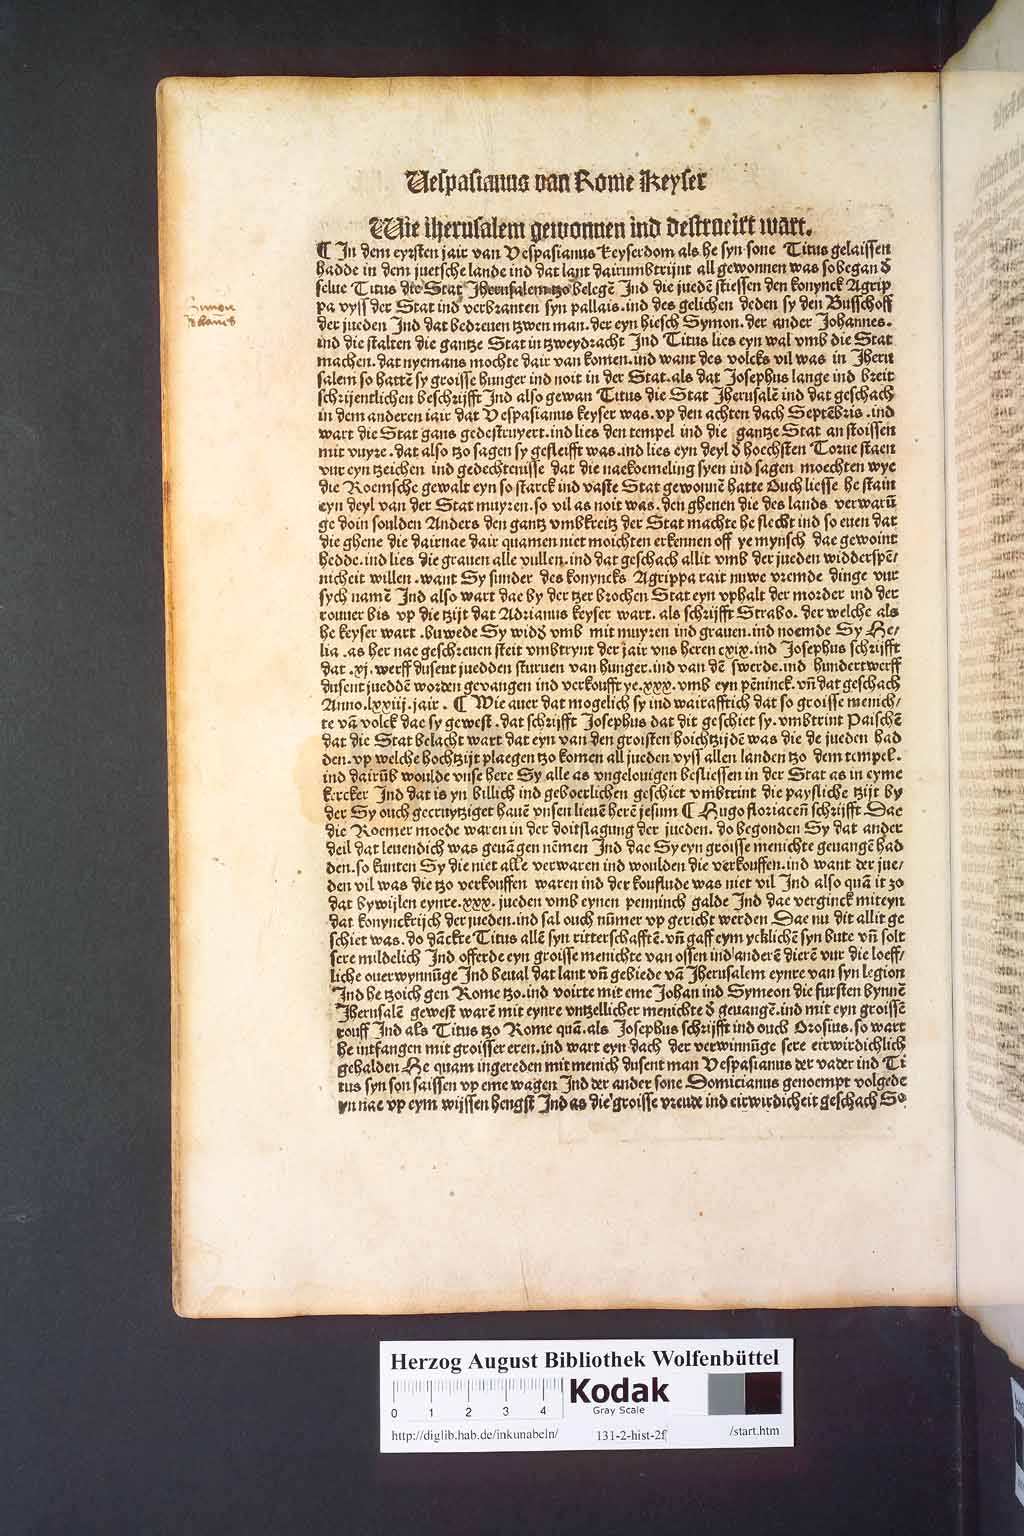 Vespasianus van Rome Keyser
Wie iherusalem gewonnen ind destrueirt wart.
¶ In dem eyrsten jair van Vespasianus keyserdom als he syn sone Titus gelaissen
hadde in dem juetsche lande ind dat lant dairumbtrijnt all gewonnen was so began d̄
selue Titus die Stat Jherusalem tzo belegē Ind die juedē stiessen den konynck Agrip
pa vyss der Stat ind verbranten syn pallais. ind des gelichen deden sy den Busschoff
der jueden Ind dat bedreuen tzwen man. der eyn hiesch Symon. der ander Johannes.
ind die stalten die gantze Stat in tzweydracht Ind Titus lies eyn wal vmb die Stat
machen. dat nyemans mochte dair van komen. ind want des volcks vil was in Jheru
salem so hattē sy groisse hunger ind noit in der Stat. als dat Josephus lange ind breit
schrijentlichen beschrijfft Ind also gewan Titus die Stat Jherusalē ind dat geschach
in dem anderen iair dat Vespasianus keyser was. vp den achten dach Septēbris. ind
wart die Stat gans gedestruyert. ind lies den tempel ind die gantze Stat an stoissen
mit vuyre. dat also tzo sagen sy gesleifft was. ind lies eyn deyl d̄ hoechsten Torne staen
vur eyn tzeichen ind gedechtenisse dat die naekoemeling syen ind sagen moechten wye
die Roemsche gewalt eyn so starck ind vaste Stat gewonnē hatte Ouch liesse he stain
eyn deyl van der Stat muyren. so vil as noit was. den ghenen die des lands verwarū
ge doin soulden Anders den gantz vmbkreitz der Stat machte he slecht ind so euen dat
die ghene die dairnae dair quamen niet moichten erkennen off ye mynsch dae gewoint
hedde. ind lies die grauen alle vullen. ind dat geschach allit vmb der jueden widderspē/
nicheit willen. want Sy sunder des konyncks Agrippa rait nuwe vremde dinge vur
sych namē Ind also wart dae by der tzer brochen Stat eyn vphalt der morder ind der
rouuer bis vp die tzijt dat Adrianus keyser wart. als schrijfft Strabo. der welche als
he keyser wart. buwede Sy widd̄ vmb mit muyren ind grauen. ind noemde Sy He/
lia. as her nae geschreuen steit vmbtrynt der jair vns heren cxix. ind Josephus schrijfft
dat. xj. werff dusent juedden sturuen van hunger. ind van dē swerde. ind hundertwerff
dusent jueddē worden gevangen ind verkoufft ye. xxx. vmb eyn pēninck. vn̄ dat geschach
Anno. lxxiij. jair. ¶ Wie auer dat mogelich sy ind wairafftich dat so groisse menich/
te vā volck dae sy gewest. dat schrijfft Josephus dat dit geschiet sy. vmbtrint Paischē
dat die Stat belacht wart dat eyn van den groisten hoichtzijdē was die de jueden had
den. vp welche hochtzijt plaegen tzo komen all jueden vyss allen landen tzo dem tempel.
ind dairūb woulde vnse here Sy alle as vngelouigen besliessen in der Stat as in eyme
kercker Ind dat is yn billich ind geboerlichen geschiet vmbtrint die paysliche tzijt by
der Sy ouch gecruytziget hauē vnsen lieuē herē jesum ¶ Hugo floriacen̄ schrijfft. Dae
die Roemer moede waren in der doitslagung der jueden. do begonden Sy dat ander
deil dat leuendich was geuāgen nēmen Ind dae Sy eyn groisse menichte geuangē had
den. so kunten Sy die niet alle verwaren ind woulden die verkouffen. ind want der jue/
den vil was die tzo verkouffen waren ind der kouflude was niet vil Ind also quā it zo
dat bywijlen eynre. xxx. jueden vmb eynen penninch galde Ind dae verginck mit eyn
dat konynckrijch der jueden. ind sal ouch nūmer vp gericht werden Dae nu dit allit ge
schiet was. do dāckte Titus allē syn ritterschafftē. vn̄ gaff eym ycklichē syn bute vn̄ solt
sere mildelich Ind offerde eyn groisse menichte van ossen ind anderē dierē vur die loeff/
liche ouerwynnūge Ind beual dat lant vn̄ gebiede vā Jherusalem eynre van syn legion
Ind he tzoich gen Rome tzo. ind voirte mit eme Johan ind Symeon die fursten bynnē
Jherusalē gewest warē mit eynre vntzellicher menichte d̄ geuangē. ind mit eyn groissē
rouff Ind als Titus tzo Rome quā. als Josephus schrijfft ind ouch Orosius. so wart
he intfangen mit groisser eren. ind wart eyn dach der verwinnūge sere eirwirdichlich
gehalden He quam ingereden mit menich dusent man Vespasianus der vader ind Ti
tus syn son saissen vp eme wagen Ind der ander sone Domicianus genoempt volgede
yn nae vp eym wijssen hengst Ind as die groisse vreude ind eirwirdicheit geschach So
Herzog August Bibliothek Wolfenbüttel
0 1 2 3 4
Kodak
Gray Scale
http://diglib.hab.de/inkunabeln/ 131-2-hist-2f /start.htm